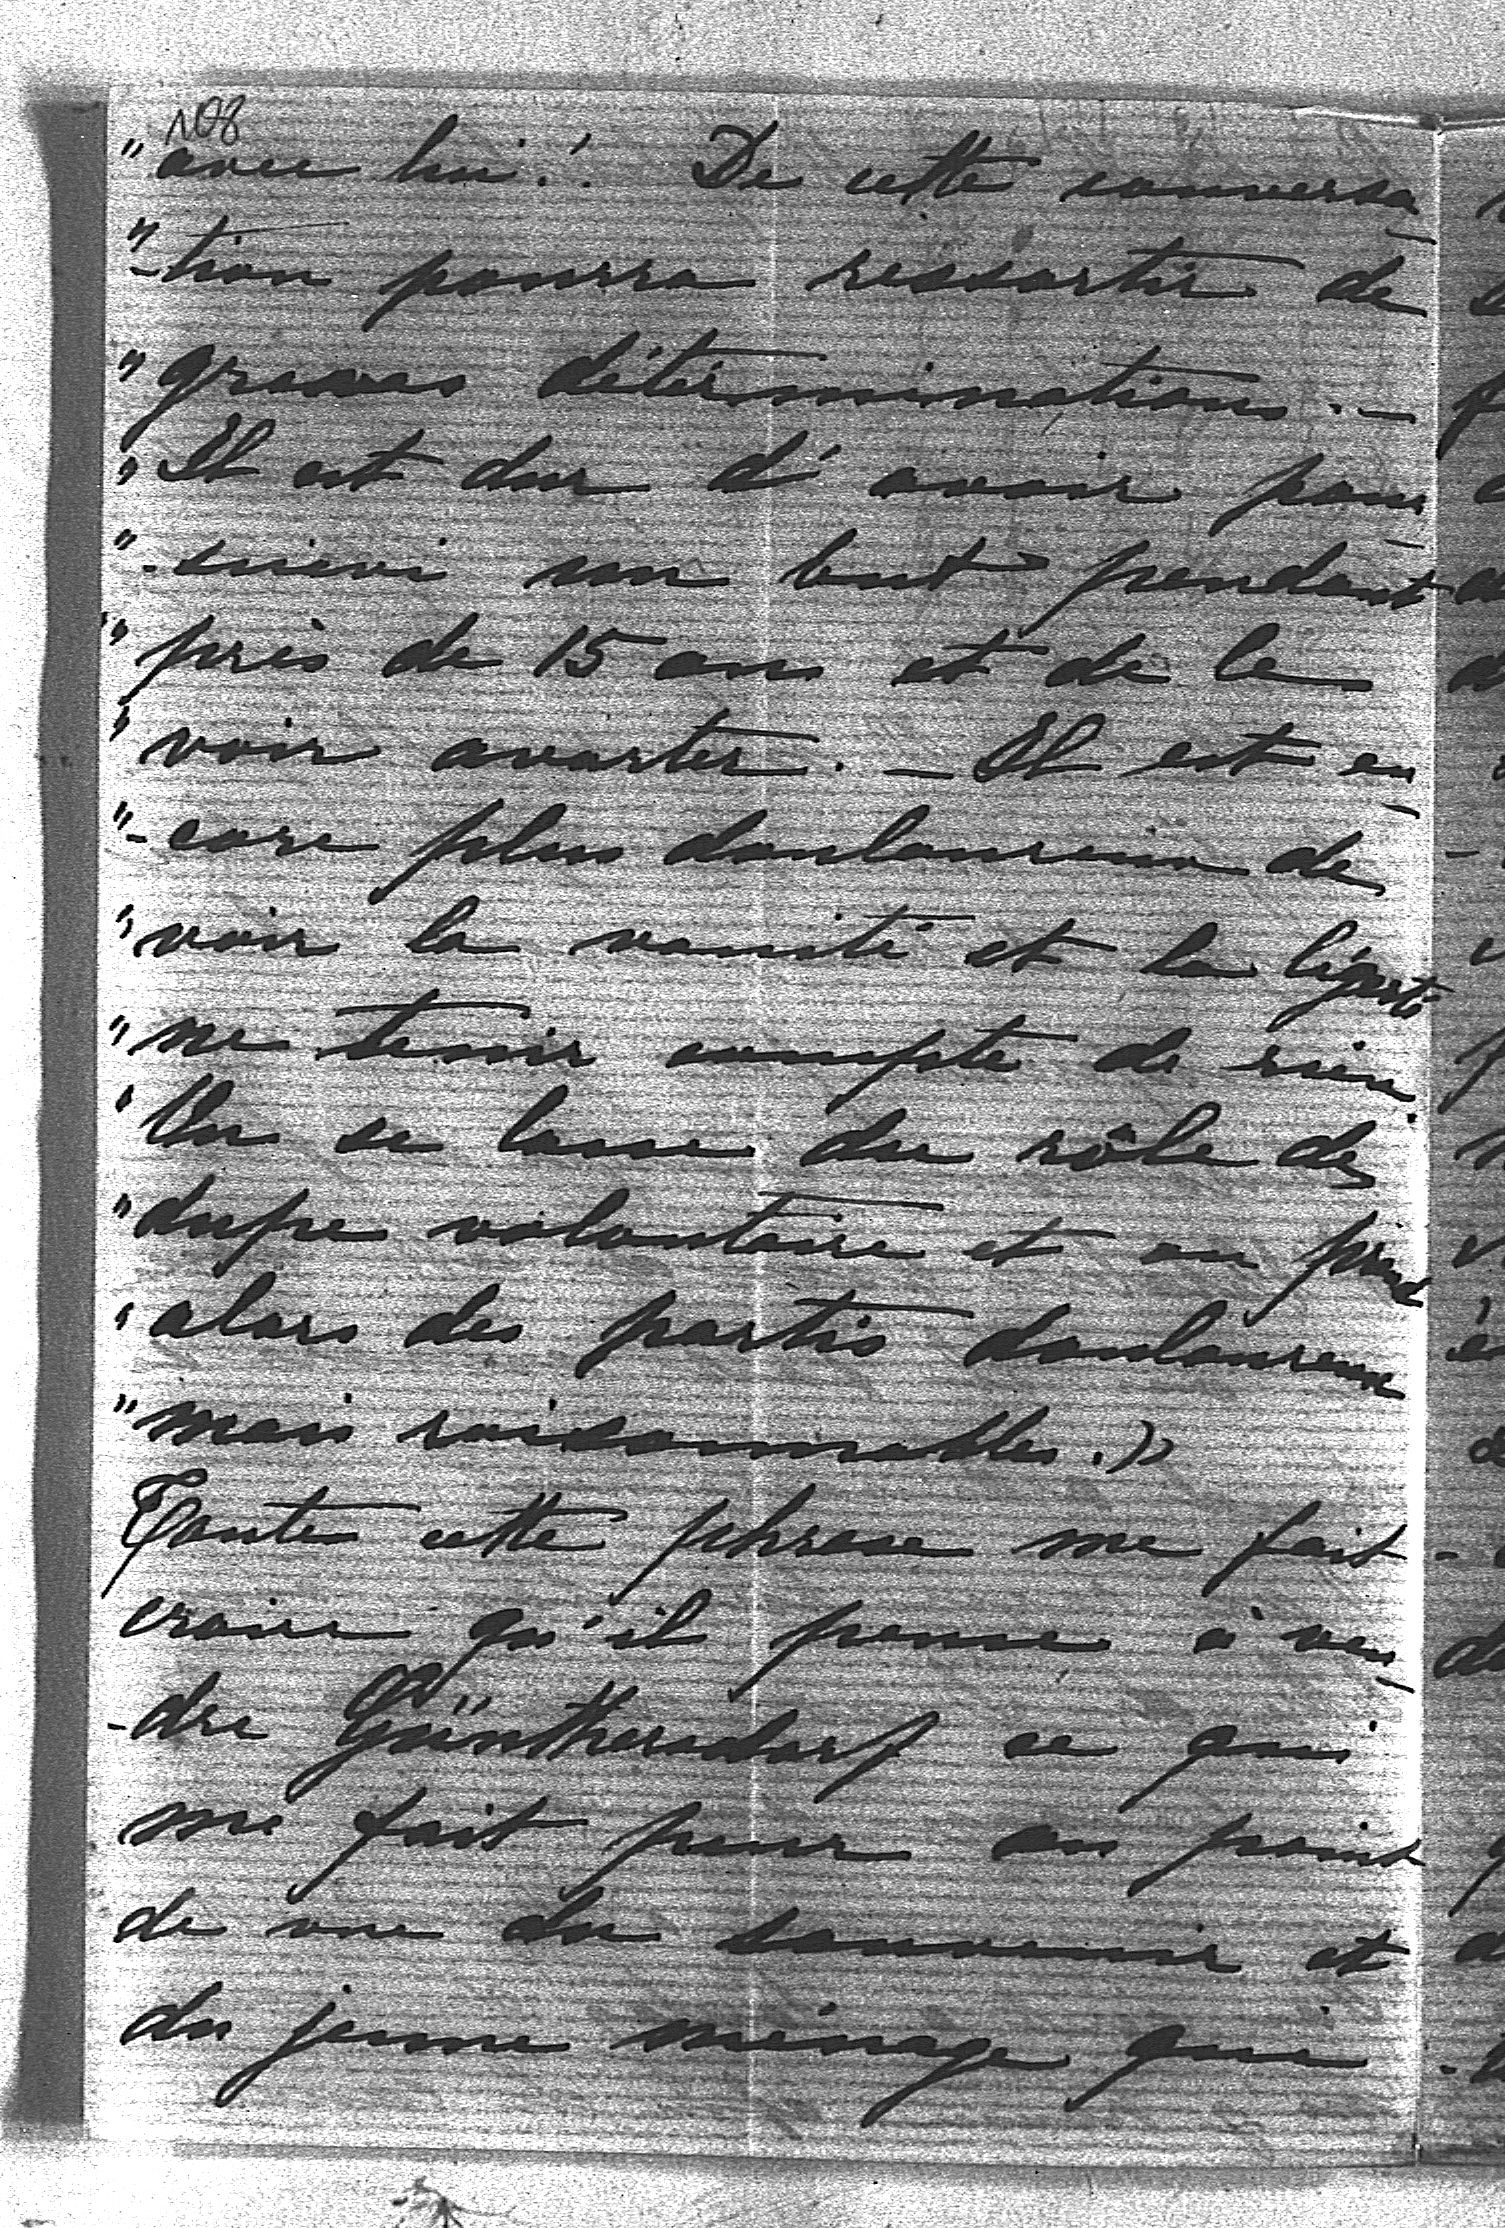 108
"avec lui.! De cette conversa-
"-tion pourra ressortir de
"graves déterminations.—
"Il est dur d'avoir pour-
"-suivi un but pendant
"près de 15 ans et de le
"voir avorter. — Il est en-
"-core plus douloureux de
"voir la vanité et la légèreté
"ne tenir compte de rien.
"On se lasse du rôle de
"dupe volontaire et on prend
"alors des partis douloureux
"mais raisonnables.»
Toute cette phrase me fait
croire qu'il pense à ven-
-dre Günthersdorf ce qui
me fait peur au point
de vue du souvenir et
du jeune ménage qui